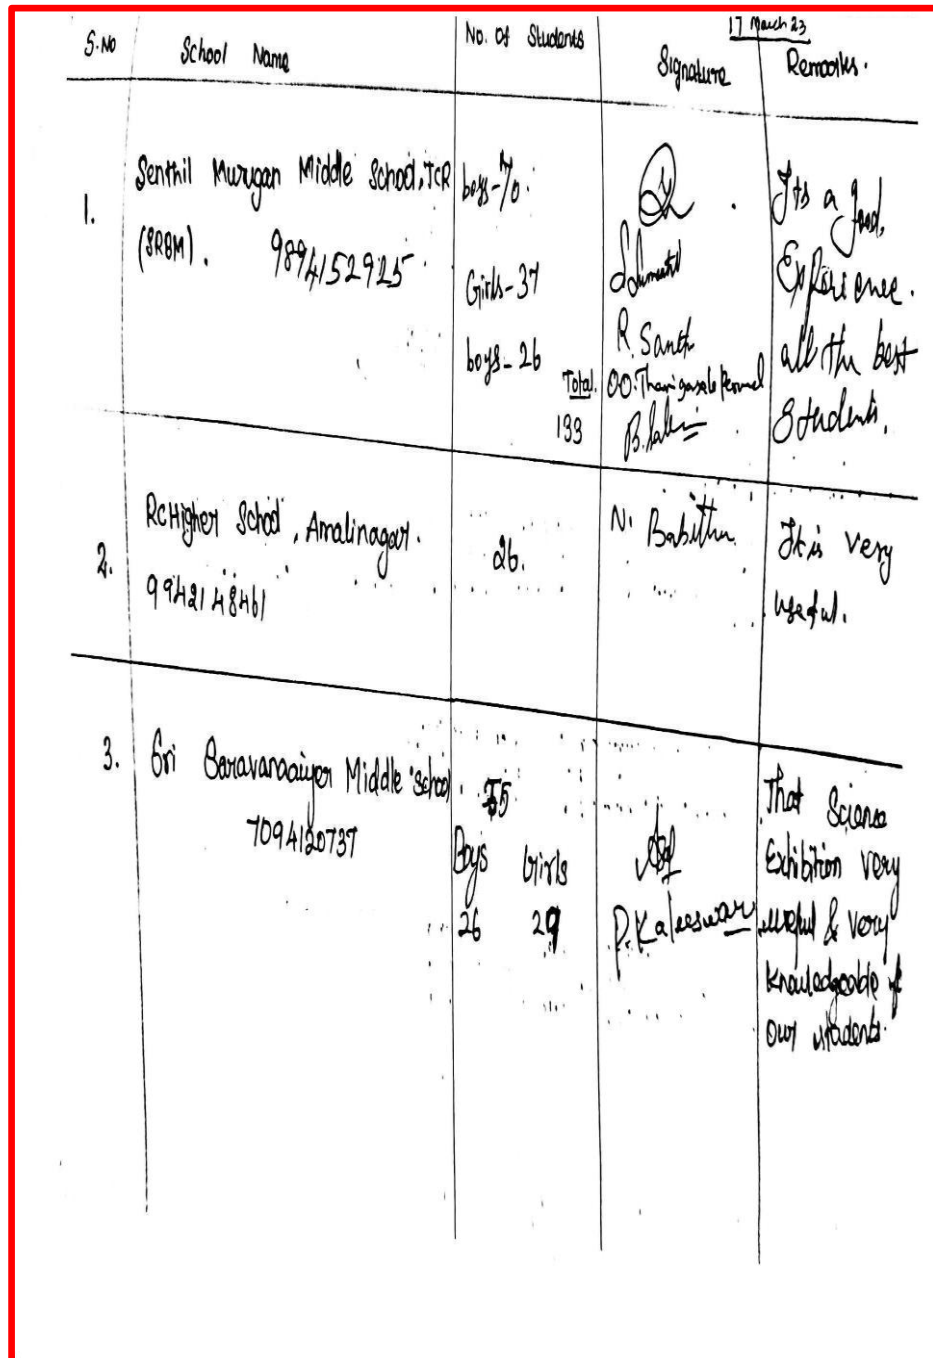 17 March 23
S.No School Name No. Of Students Signature Remarks.
1. Senthil Murugan Middle School, TCR
(SRBM). 9894152925
boys-70.
Girls-37
boys-26
Total.
133
R. Santh
B.
Its a good,
Experience.
all the best
Students.
2. RC Higher School, Amalinagar.
9942148461
26.
N. Babitha
It is very
useful.
3. Sri Saravanaaiyer Middle School
7094120737
55
Boys Girls
26 29
P. Kaleeswari
That Science
Exhibition very
useful & very
knowledgeable of
our students.